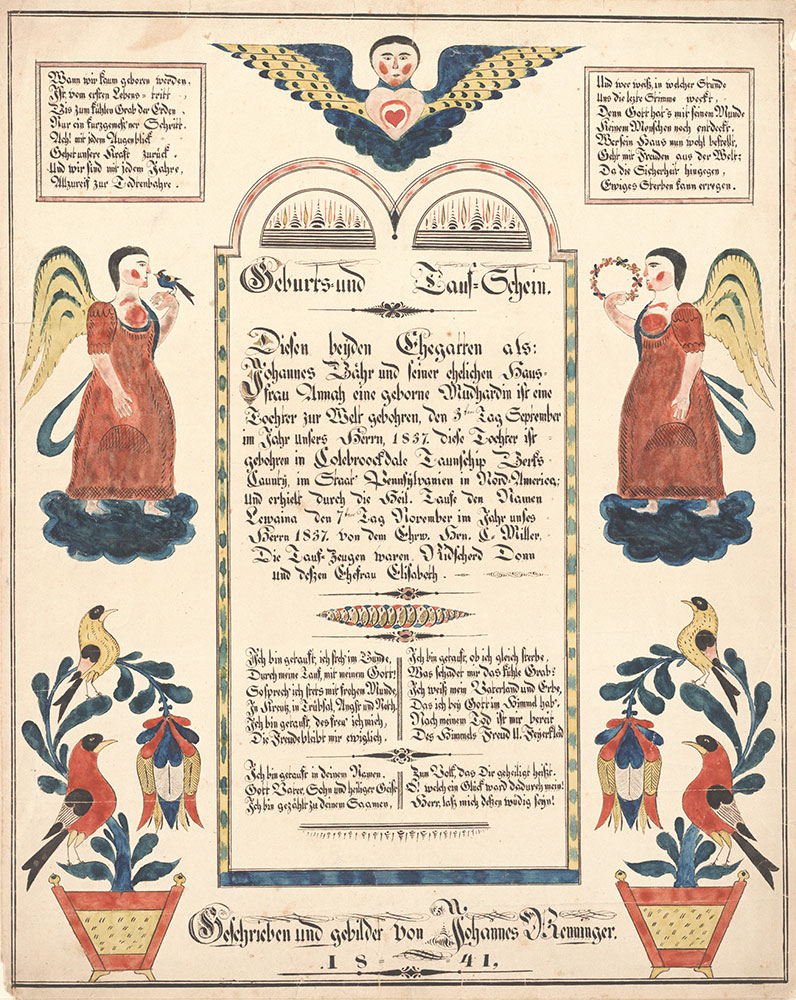 Wann wir kaum geboren werden,
Ist vom ersten Lebens-tritt
Bis zum kühlen Grab der Erden,
Nur ein kurzgemeß'ner Schritt.
Ach! mit jedem Augenblick
Gehet unsere Kraft zurück.
Und wir sind mit jedem Jahre,
Allzureif zur Todtenbahre.
Und wer weiß, in welcher Stunde
Uns die lezte Stimme weckt,
Denn Gott hat's mit seinem Munde
Keinem Menschen noch entdeckt.
Wer sein Haus nun wohl bestellt,
Geht mit Freuden aus der Welt:
Da die Sicherheit hingegen,
Ewiges Sterben kann erregen.
Geburts-und Tauf-Schein.
Diesen beyden Ehegatten als:
Johannes Bähr und seiner ehelichen Haus-
frau Annah eine geborne Mudhardin ist eine
Tochter zur Welt gebohren, den 3ten Tag September
im Jahr unsers Herrn, 1837. diese Tochter ist
gebohren in Colebroockdale Taunschip Berks
Caunty, im Staat Pennsylvanien in Nord-America;
und erhielt durch die Heil. Taufe den Namen
Lewaina den 7ten Tag November im Jahr unses
Herrn 1837. von dem Ehrw. Hrn. C. Miller.
Die Tauf-Zeugen waren. Ridscherd Donn
und deßen Ehefrau Elisabeth.
Ich bin getauft, ich steh' im Bunde,
Durch meine Tauf, mit meinem Gott!
So sprech' ich stets mit frohen Munde,
In Kreutz, in Trübsal, Angst und Noth.
Ich bin getauft, des freu' ich mich,
Die Freude bleibt mir ewiglich.
Ich bin getauft, ob ich gleich sterbe,
Was schadet mir das kühle Grab?
Ich weiß mein Vaterland und Erbe,
Das ich bey Gott im Himmel hab'.
Nach meinem Tod ist mir bereit
Des Himmels Freud U. Feyerkleid
Ich bin getauft in deinem Namen.
Gott Vater, Sohn und heiliger Geist
Ich bin gezählt zu deinem Saamen,
Zum Volk, das Dir geheiligt heißt.
O! welch ein Glück ward dadurch mein!
Herr, laß mich deßen wüdig seyn!
Geschrieben und gebildet von Johannes Renninger.
1841,